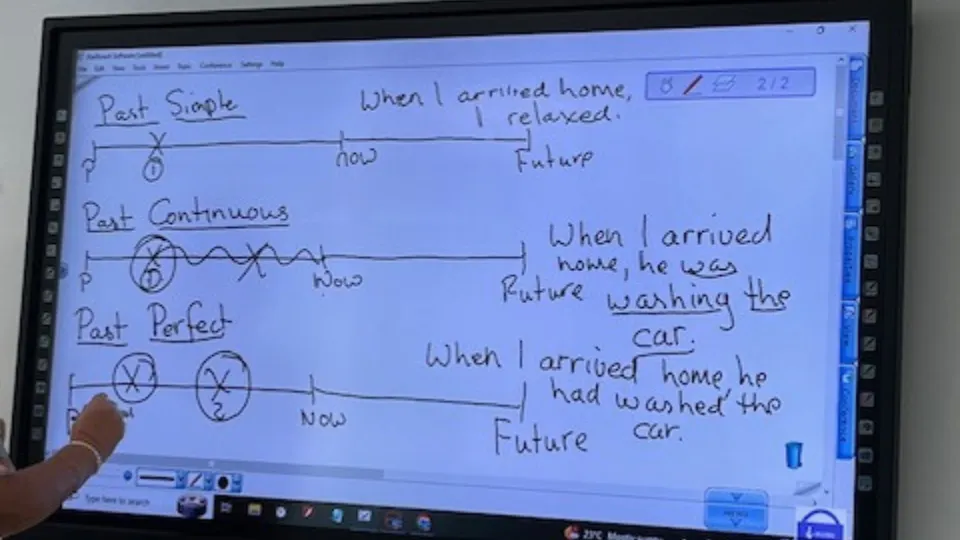 File Edit View Tools Insert Page Conference Settings Help
2/2
Past Simple
When I arrived home,
I relaxed.
P
1
now
Future
Past Continuous
When I arrived
home, he was
washing the
car.
P
1
Now
Future
Past Perfect
When I arrived home, he
had washed the
car.
2
Now
Future
Type here to search
23°C